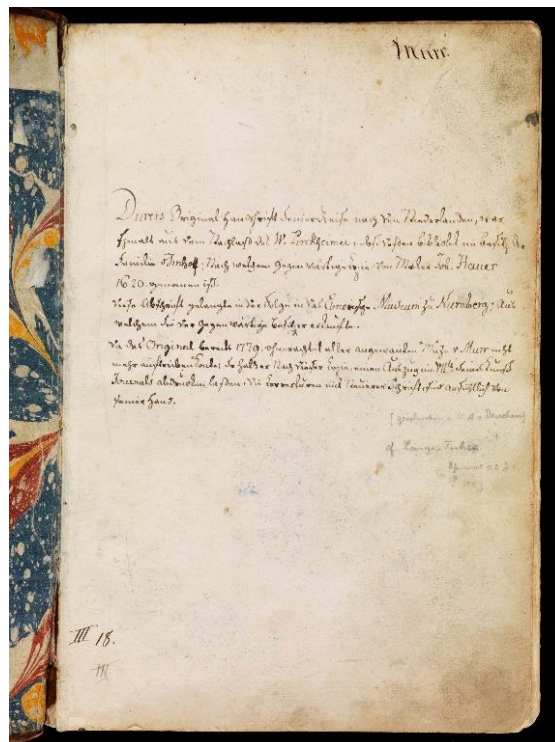 Murr.
Dürers Original Handschrift seiner Reise nach den Niederlanden, war
Ehemals aus dem Nachlass des W. Pirkheimer nebst dessen Bibliothek im Besitz der
Familie v Imhoff; Nach welchem gegenwärtige Copie von Maler Joh. Hauer
1620. genommen ist.
Diese Abschrift gelangte in der Folge in das Museum zu Nürnberg; aus
welchem sie der gegenwärtige Besitzer erkaufte.
Da das Original bereits 1779. ohnerachtet aller angewandten Mühe v Murr nicht
mehr auftreiben konte; so hat er nach dieser Copie, einen Auszug im VII seines Kunst
Journals abdrucken lassen; die Correcturen mit neuerer Schrift sind von
seiner Hand.
cf Lange-Fuhse
III 18.
III